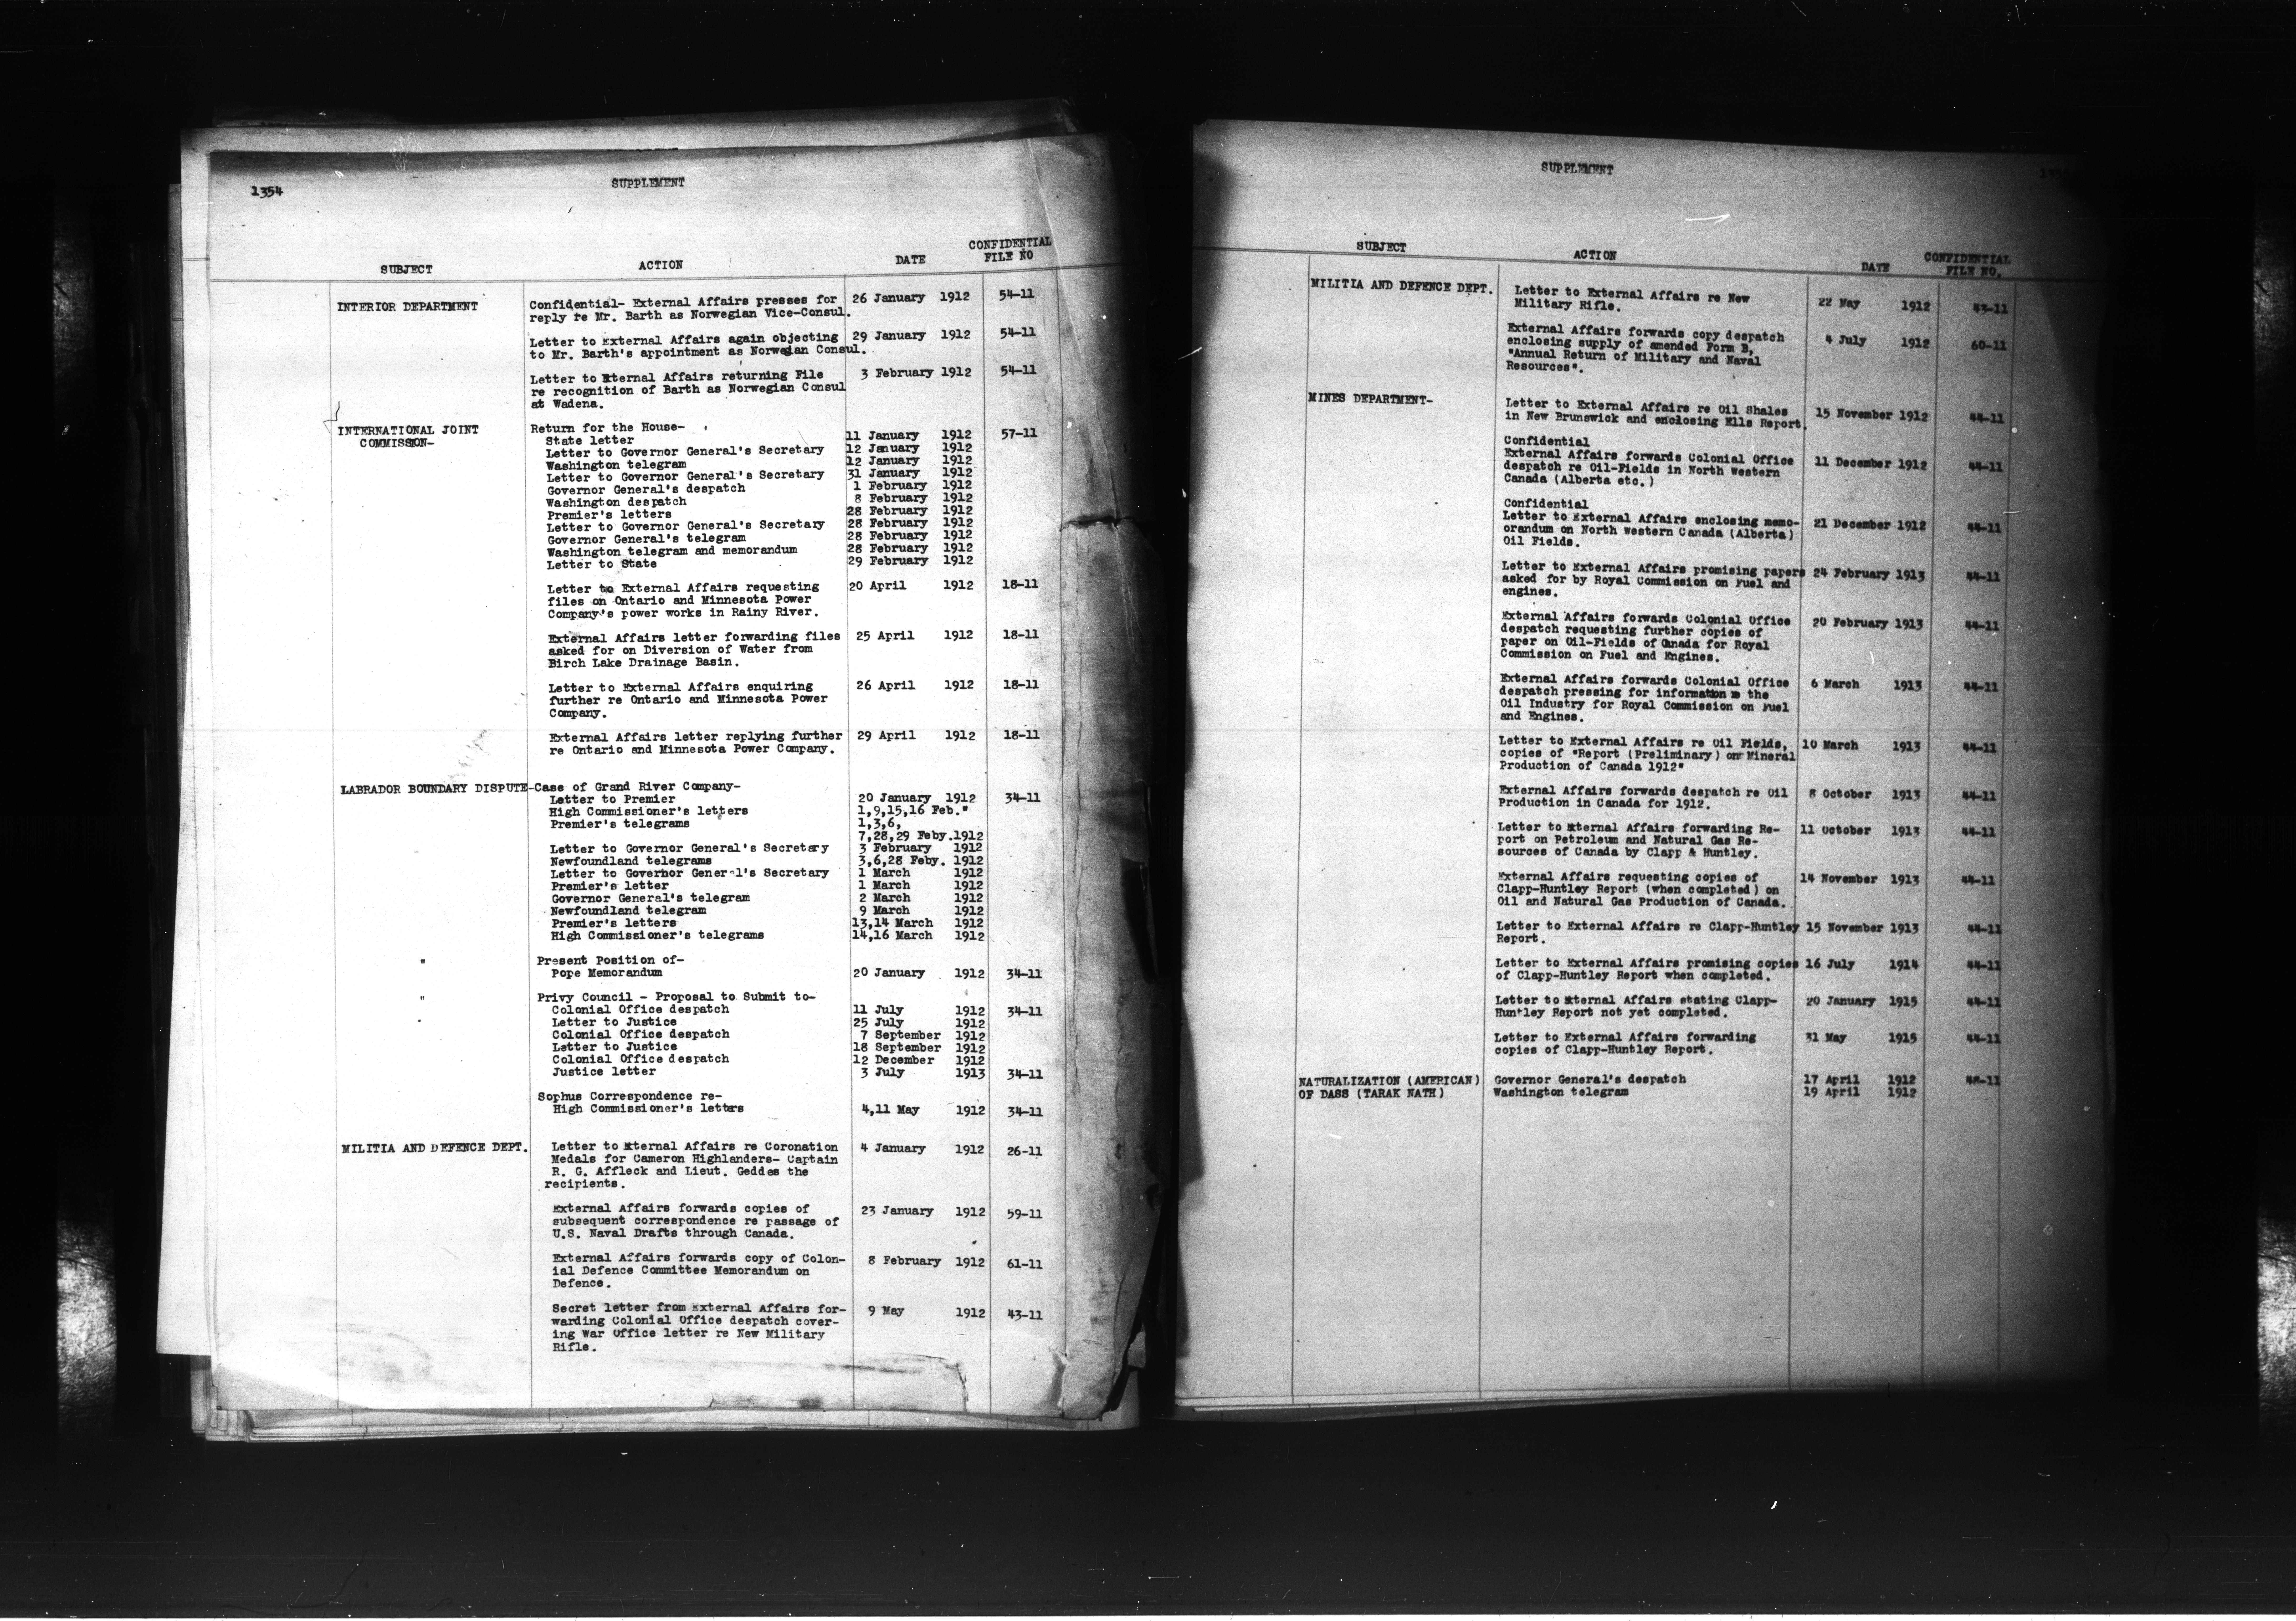 1354
SUPPLEMENT
SUBJECT ACTION DATE CONFIDENTIAL FILE NO
INTERIOR DEPARTMENT Confidential- External Affairs presses for 26 January 1912 54-11
reply re Mr. Barth as Norwegian Vice-Consul.
Letter to External Affairs again objecting 29 January 1912 54-11
to Mr. Barth's appointment as Norwegian Consul.
Letter to External Affairs returning File 3 February 1912 54-11
re recognition of Barth as Norwegian Consul
at Wadena.
INTERNATIONAL JOINT Return for the House-
COMMISSION- State letter 11 January 1912 57-11
Letter to Governor General's Secretary 12 January 1912
Washington telegram 12 January 1912
Letter to Governor General's Secretary 31 January 1912
Governor General's despatch 1 February 1912
Washington despatch 8 February 1912
Premier's letters 28 February 1912
Letter to Governor General's Secretary 28 February 1912
Governor General's telegram 28 February 1912
Washington telegram and memorandum 28 February 1912
Letter to State 29 February 1912
Letter to External Affairs requesting 20 April 1912 18-11
files on Ontario and Minnesota Power
Company's power works in Rainy River.
External Affairs letter forwarding files 25 April 1912 18-11
asked for on Diversion of Water from
Birch Lake Drainage Basin.
Letter to External Affairs enquiring 26 April 1912 18-11
further re Ontario and Minnesota Power
Company.
External Affairs letter replying further 29 April 1912 18-11
re Ontario and Minnesota Power Company.
LABRADOR BOUNDARY DISPUTE-Case of Grand River Company-
Letter to Premier 20 January 1912 34-11
High Commissioner's letters 1,9,15,16 Feb."
Premier's telegrams 1,3,6,
7,28,29 Feby.1912
Letter to Governor General's Secretary 3 February 1912
Newfoundland telegrams 3,6,28 Feby. 1912
Letter to Governor General's Secretary 1 March 1912
Premier's letter 1 March 1912
Governor General's telegram 2 March 1912
Newfoundland telegram 9 March 1912
Premier's letters 13,14 March 1912
High Commissioner's telegrams 14,16 March 1912
" Present Position of-
Pope Memorandum 20 January 1912 34-11
" Privy Council - Proposal to Submit to-
Colonial Office despatch 11 July 1912 34-11
Letter to Justice 25 July 1912
Colonial Office despatch 7 September 1912
Letter to Justice 18 September 1912
Colonial Office despatch 12 December 1912
Justice letter 3 July 1913 34-11
Sophus Correspondence re-
High Commissioner's letters 4,11 May 1912 34-11
MILITIA AND DEFENCE DEPT. Letter to External Affairs re Coronation 4 January 1912 26-11
Medals for Cameron Highlanders- Captain
R. G. Affleck and Lieut. Geddes the
recipients.
External Affairs forwards copies of 23 January 1912 59-11
subsequent correspondence re passage of
U.S. Naval Drafts through Canada.
External Affairs forwards copy of Colon- 8 February 1912 61-11
ial Defence Committee Memorandum on
Defence.
Secret letter from External Affairs for- 9 May 1912 43-11
warding Colonial Office despatch cover-
ing War Office letter re New Military
Rifle.
SUPPLEMENT
SUBJECT ACTION DATE CONFIDENTIAL FILE NO.
MILITIA AND DEFENCE DEPT. Letter to External Affairs re New 22 May 1912 43-11
Military Rifle.
External Affairs forwards copy despatch 4 July 1912 60-11
enclosing supply of amended Form B,
"Annual Return of Military and Naval
Resources".
MINES DEPARTMENT- Letter to External Affairs re Oil Shales 15 November 1912 44-11
in New Brunswick and enclosing Ells Report.
Confidential
External Affairs forwards Colonial Office 11 December 1912 44-11
despatch re Oil-Fields in North western
Canada (Alberta etc.)
Confidential
Letter to External Affairs enclosing memo- 21 December 1912 44-11
orandum on North western Canada (Alberta)
Oil Fields.
Letter to External Affairs promising papers 24 February 1913 44-11
asked for by Royal Commission on Fuel and
engines.
External Affairs forwards Colonial Office 20 February 1913 44-11
despatch requesting further copies of
paper on Oil-Fields of Canada for Royal
Commission on Fuel and Engines.
External Affairs forwards Colonial Office 6 March 1913 44-11
despatch pressing for information re the
Oil Industry for Royal Commission on Fuel
and Engines.
Letter to External Affairs re Oil Fields, 10 March 1913 44-11
copies of "Report (Preliminary) on Mineral
Production of Canada 1912"
External Affairs forwards despatch re Oil 8 October 1913 44-11
Production in Canada for 1912.
Letter to External Affairs forwarding Re- 11 October 1913 44-11
port on Petroleum and Natural Gas Re-
sources of Canada by Clapp & Huntley.
External Affairs requesting copies of 14 November 1913 44-11
Clapp-Huntley Report (when completed) on
Oil and Natural Gas Production of Canada.
Letter to External Affairs re Clapp-Huntley 15 November 1913 44-11
Report.
Letter to External Affairs promising copies 16 July 1914 44-11
of Clapp-Huntley Report when completed.
Letter to External Affairs stating Clapp- 20 January 1915 44-11
Huntley Report not yet completed.
Letter to External Affairs forwarding 31 May 1915 44-11
copies of Clapp-Huntley Report.
NATURALIZATION (AMERICAN) Governor General's despatch 17 April 1912
OF DASS (TARAK NATH) Washington telegram 19 April 1912